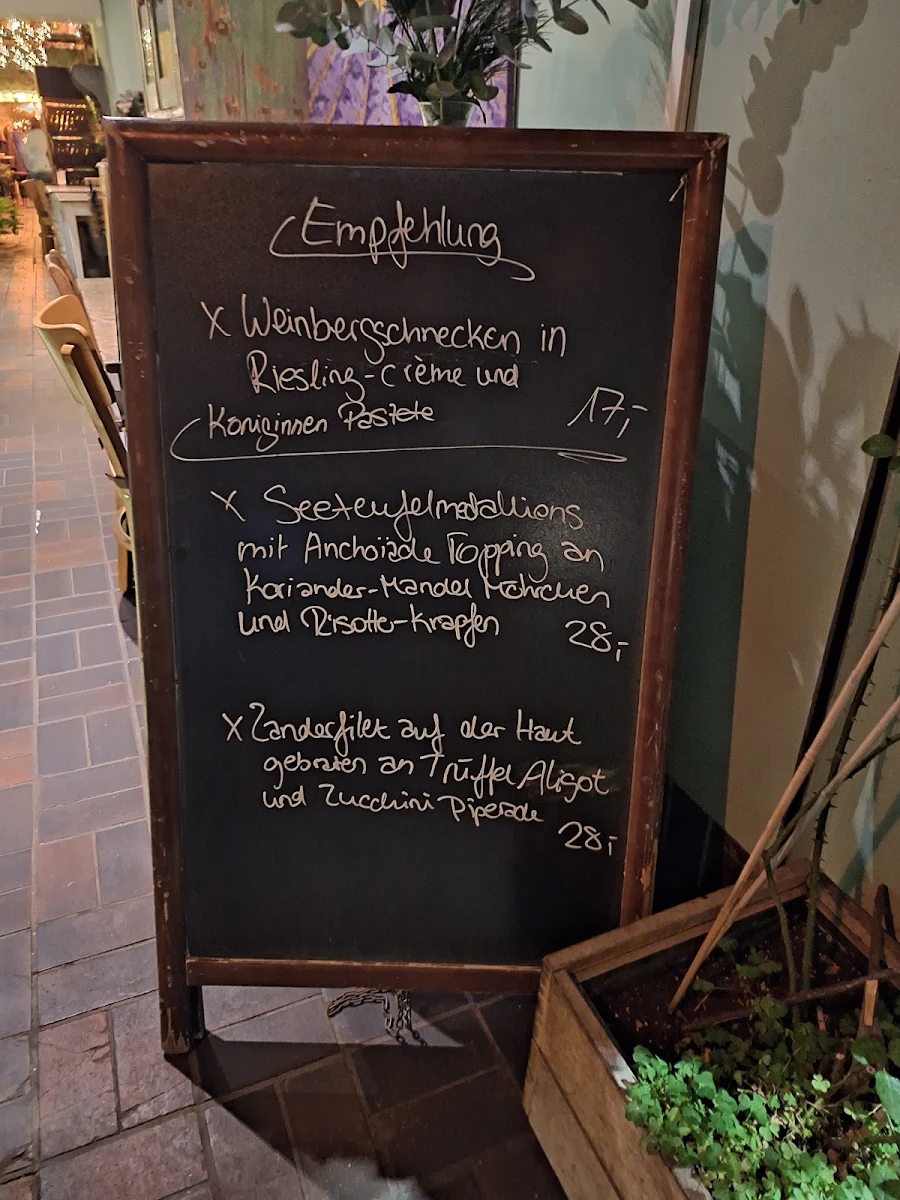 Empfehlung
x Weinbergschnecken in
Riesling-crème und
Königinnen Pastete 17,-
x Seeteufelmedallions
mit Anchoiade Topping an
Koriander-Mandel Möhrchen
und Risotto-Krapfen 28,-
x Zanderfilet auf der Haut
gebraten an Trüffel Aligot
und Zucchini Piperade
28,-